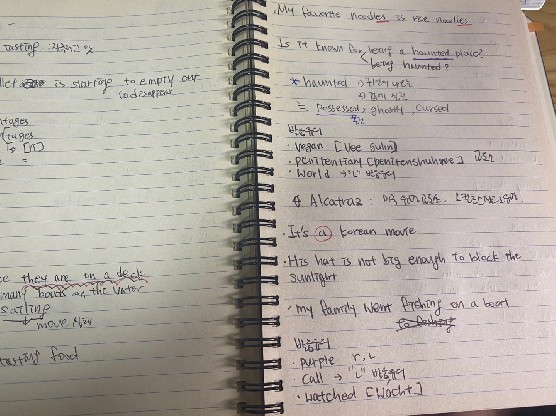 Tasting :
is starting to empty out
to disappear
ntages
tages
[n]
ce they are on a deck
many boats on the water
sailing
move
tasting food
My favorite noodles is rice noodles.
Is it known for being a haunted place?
being haunted?
* haunted
= possessed, ghostly, cursed
발음유의
· vegan [Vee
· penitentiary [penitenshuhree] 교도소
· World → "L" 발음유의
Alcatraz : 미국
· It's ⓐ Korean movie
· His hat is not big enough to block the
sunlight
· my family went fishing on a boat
to fishing
발음유의
· purple r, L
· call → "L" 발음유의
· watched [Wacht]